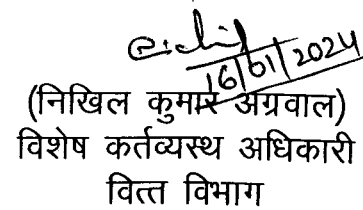 16/01/2024
(निखिल कुमार अग्रवाल)
विशेष कर्तव्यस्थ अधिकारी
वित्त विभाग